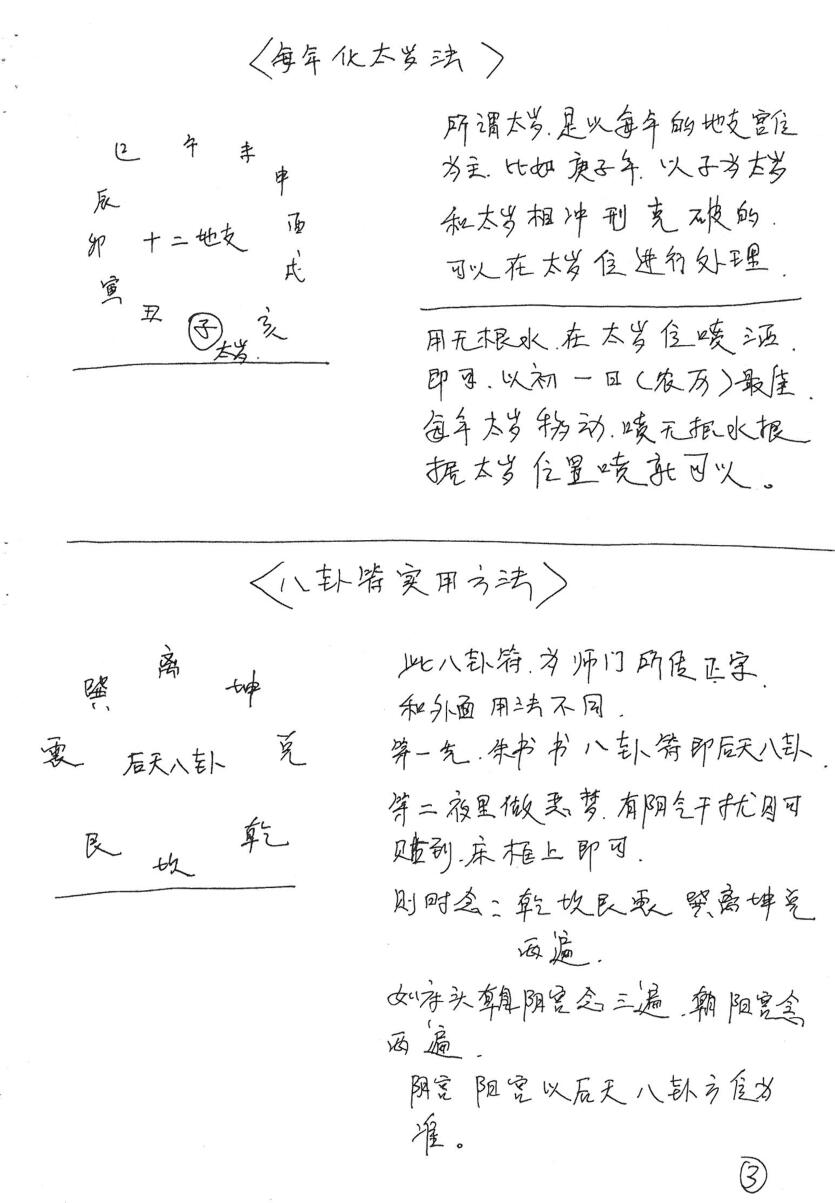 〈每年化太岁法〉
巳 午 未
申
辰
酉
卯 十二地支
戌
寅
丑 子 亥
太岁.
所谓太岁.是以每年的地支宫位
为主.比如庚子年.以子为太岁
和太岁相冲刑克破的.
可以在太岁位进行处理.
用无根水.在太岁位喷洒.
即可.以初一日(农历)最佳.
每年太岁移动.喷无根水根
据太岁位置喷就可以。
〈八卦符实用方法〉
离
巽 坤
震 后天八卦 兑
艮 坎 乾
此八卦符.为师门所传正字.
和外面用法不同.
第一先.朱书书八卦符即后天八卦.
第二夜里做恶梦.有阴气干扰则可
贴到.床框上即可.
则时念:乾坎艮震 巽离坤兑
两遍.
如床头朝阴宫念三遍.朝阳宫念
两遍.
阴宫 阳宫以后天八卦方位为
准。
③